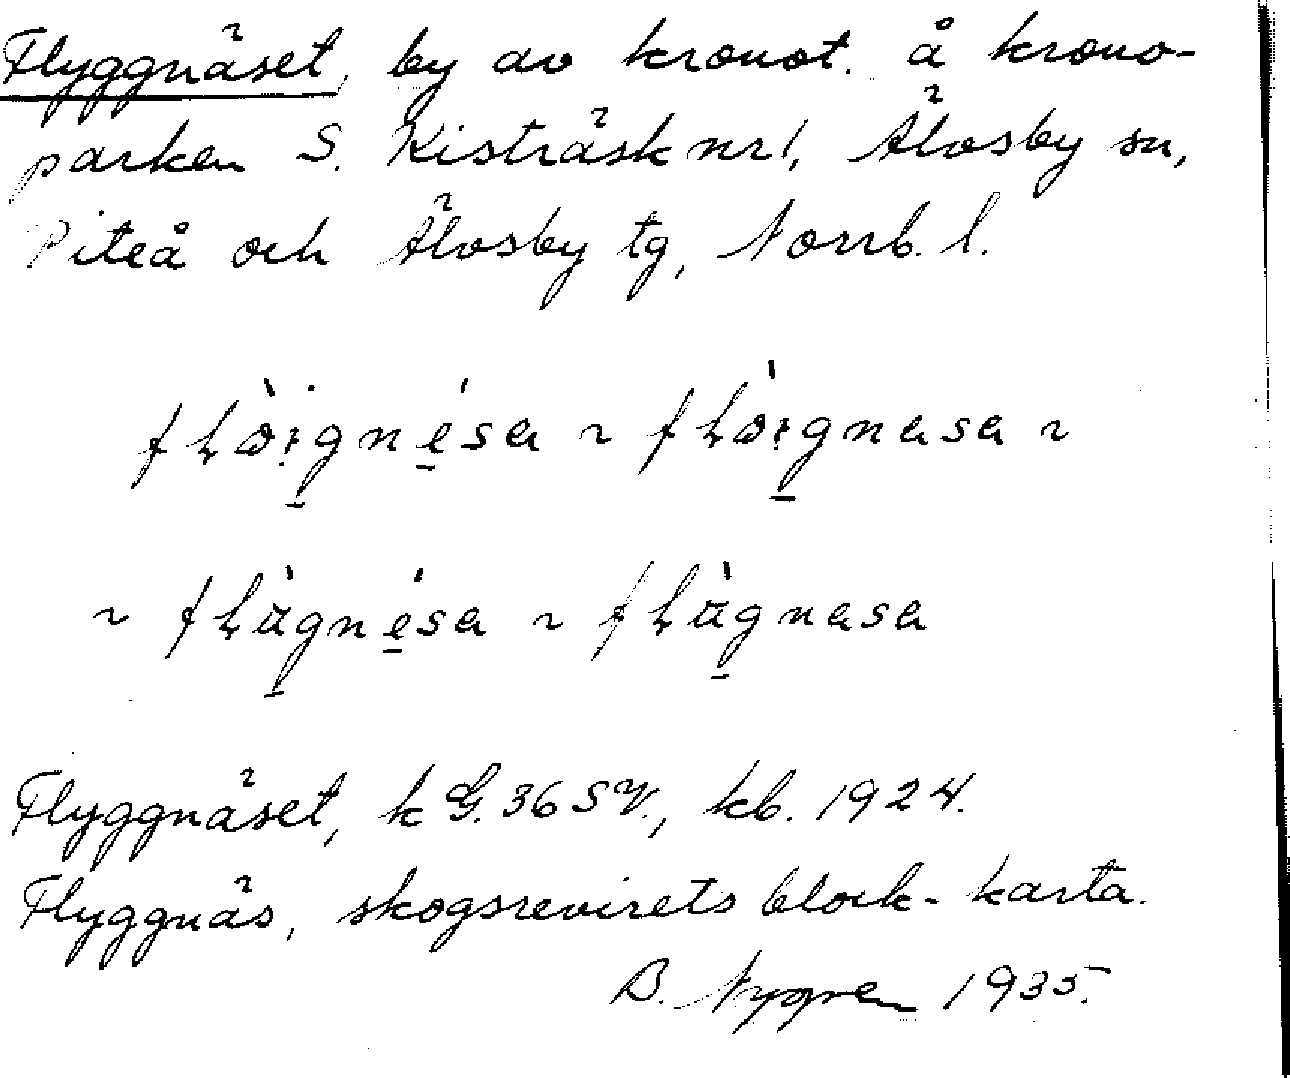 Flyggnäset, by av kronot. å krono-
parken S. Kisträsk nr 1, Älvsby sn,
Piteå och Älvsby tg, Norrb. l.
Flyggnäset, k G. 36 SV., kb. 1924.
Flyggnäs, skogsrevirets block-karta.
B. Nygren 1935.